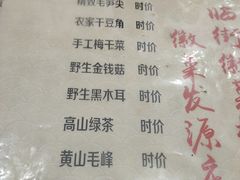 精致毛笋尖 时价
农家干豆角 时价
手工梅干菜 时价
野生金钱菇 时价
野生黑木耳 时价
高山绿茶 时价
黄山毛峰 时价
临街徽
徽菜发源店